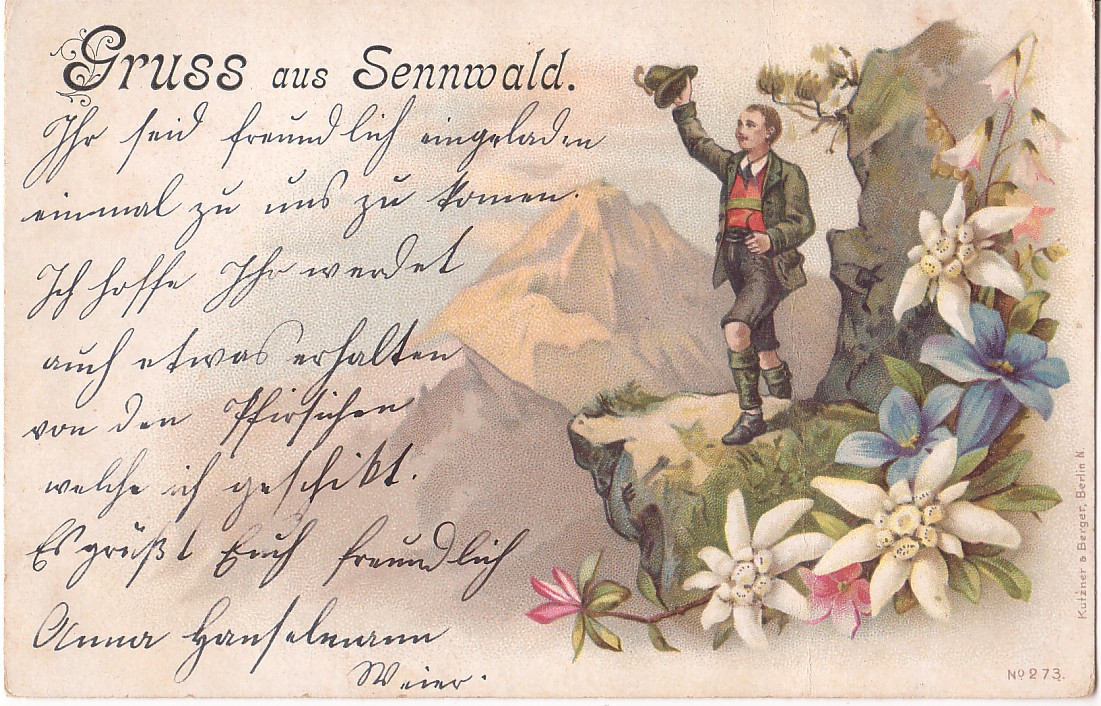 Gruss aus Sennwald.
Ihr seid freundlich eingeladen
einmal zu uns zu komen.
Ich hoffe Ihr werdet
auch etwas erhalten
von den Pfirsichen
welche ich geschikt.
Es grüßt Euch freundlich
Anna Hanselmann
Weier.
Kutzner & Berger, Berlin N.
No 273.